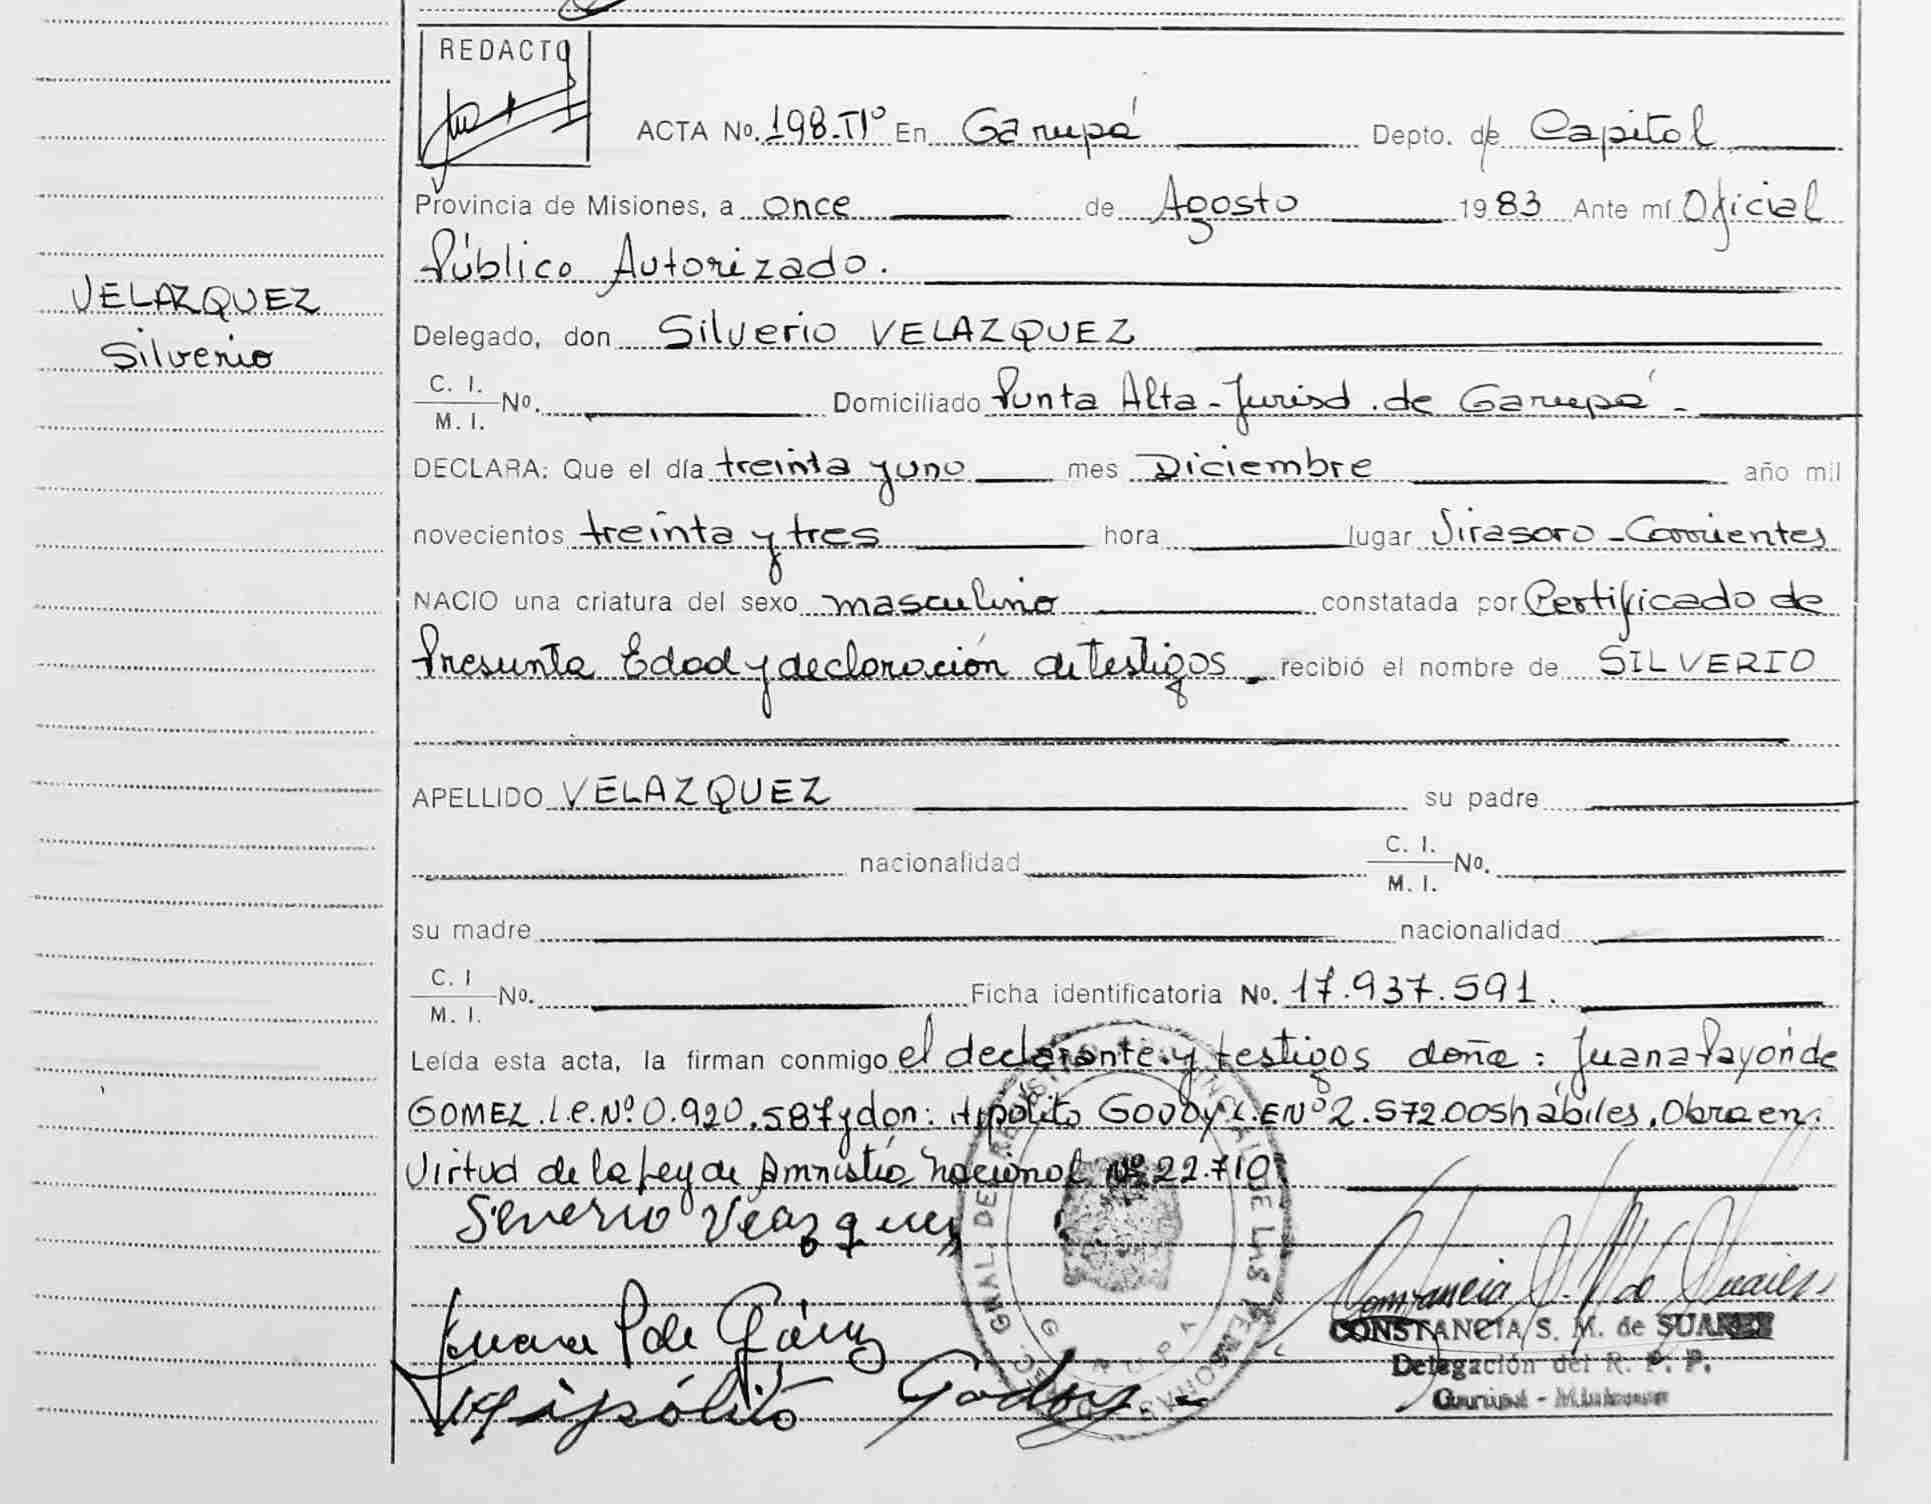 REDACTO
ACTA No. 198-Tº En Garupá Depto. de Capital
Provincia de Misiones, a once de Agosto 1983 Ante mí Oficial
Público Autorizado.
VELAZQUEZ
Silverio
Delegado, don Silverio VELAZQUEZ
C. I.
M. I. No. Domiciliado Punta Alta - Jurisd. de Garupá -
DECLARA: Que el día treinta y uno mes Diciembre año mil
novecientos treinta y tres hora lugar Virasoro - Corrientes
NACIO una criatura del sexo masculino constatada por Certificado de
Presunta Edad y declaración de testigos recibió el nombre de SILVERIO
APELLIDO VELAZQUEZ su padre
nacionalidad C. I.
M. I. No.
su madre nacionalidad
C. I
M. I. No. Ficha identificatoria No. 17.937.591.
Leída esta acta, la firman conmigo el declarante y testigos doña: Juana Payón de
GOMEZ. L.C. Nº 0.920.587 y don: Hipólito GODOY L.E Nº 2.572.005 hábiles. Obra en
Virtud de la Ley de Amnistía Nacional Nº 22.710
Severio Veazquez
Juana P de Gómez
Hipólito Godoy
CONSTANCIA S. M. de SUAREZ
Delegación del R. P. P.
Garupá - Misiones